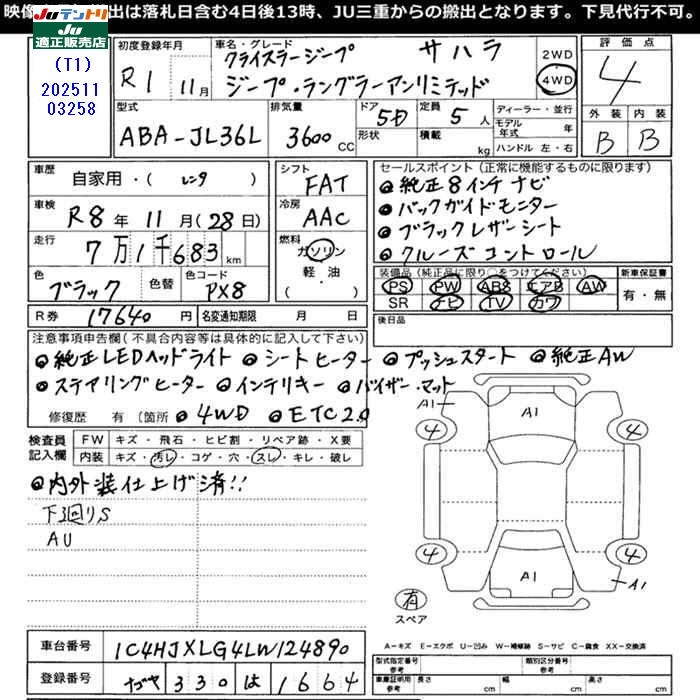 映像 出は落札日含む4日後13時、JU三重からの搬出となります。下見代行不可。
JUテントリ
JU 適正販売店
(T1)
202511
03258
初度登録年月 R1 11月
車名・グレード クライスラージープ サハラ
ジープ・ラングラーアンリミテッド
2WD
4WD
評価点
4
外装 内装
B B
型式 ABA-JL36L
排気量 3600 CC
ドア 5D
形状
定員 5 人
積載 kg
ディーラー・並行
モデル年式 年
ハンドル 左・右
車歴 自家用・( レンタ )
車検 R8年 11月(28日)
走行 7万1千683 km
色 ブラック 色替 色コード PX8
シフト FAT
冷房 AAC
燃料 ガソリン
軽・油
( )
セールスポイント(正常に機能するものに限ります)
純正8インチナビ
バックガイドモニター
ブラックレザーシート
クルーズコントロール
装備品(純正品に限り○をつけてください) 新車保証書
PS PW ABS エアB AW 有・無
SR ナビ TV カワ
後日品
R券 17640 円 名変通知期限 月 日
注意事項申告欄(不具合内容等は具体的に記入して下さい)
純正LEDヘッドライト シートヒーター プッシュスタート 純正AW
ステアリングヒーター インテリキー バイザー・マット
修復歴 有〔箇所 4WD ETC2.0
検査員記入欄
FW キズ・飛石・ヒビ割・リペア跡・X要
内装 キズ・汚レ・コゲ・穴・スレ・キレ・破レ
内外装仕上げ済!!
下廻りS
AU
A1
A1
4 4
4 4
A1
A1
有
スペア
A-キズ E-エクボ U-凹み W-補修跡 S-サビ C-腐食 XX-交換済
車台番号 1C4HJXLG4LW124890
登録番号 ナゴヤ 330 は 1664
型式指定番号 参考 類別区分番号 参考
車庫証明用 参考 長さ cm 幅 cm 高さ cm